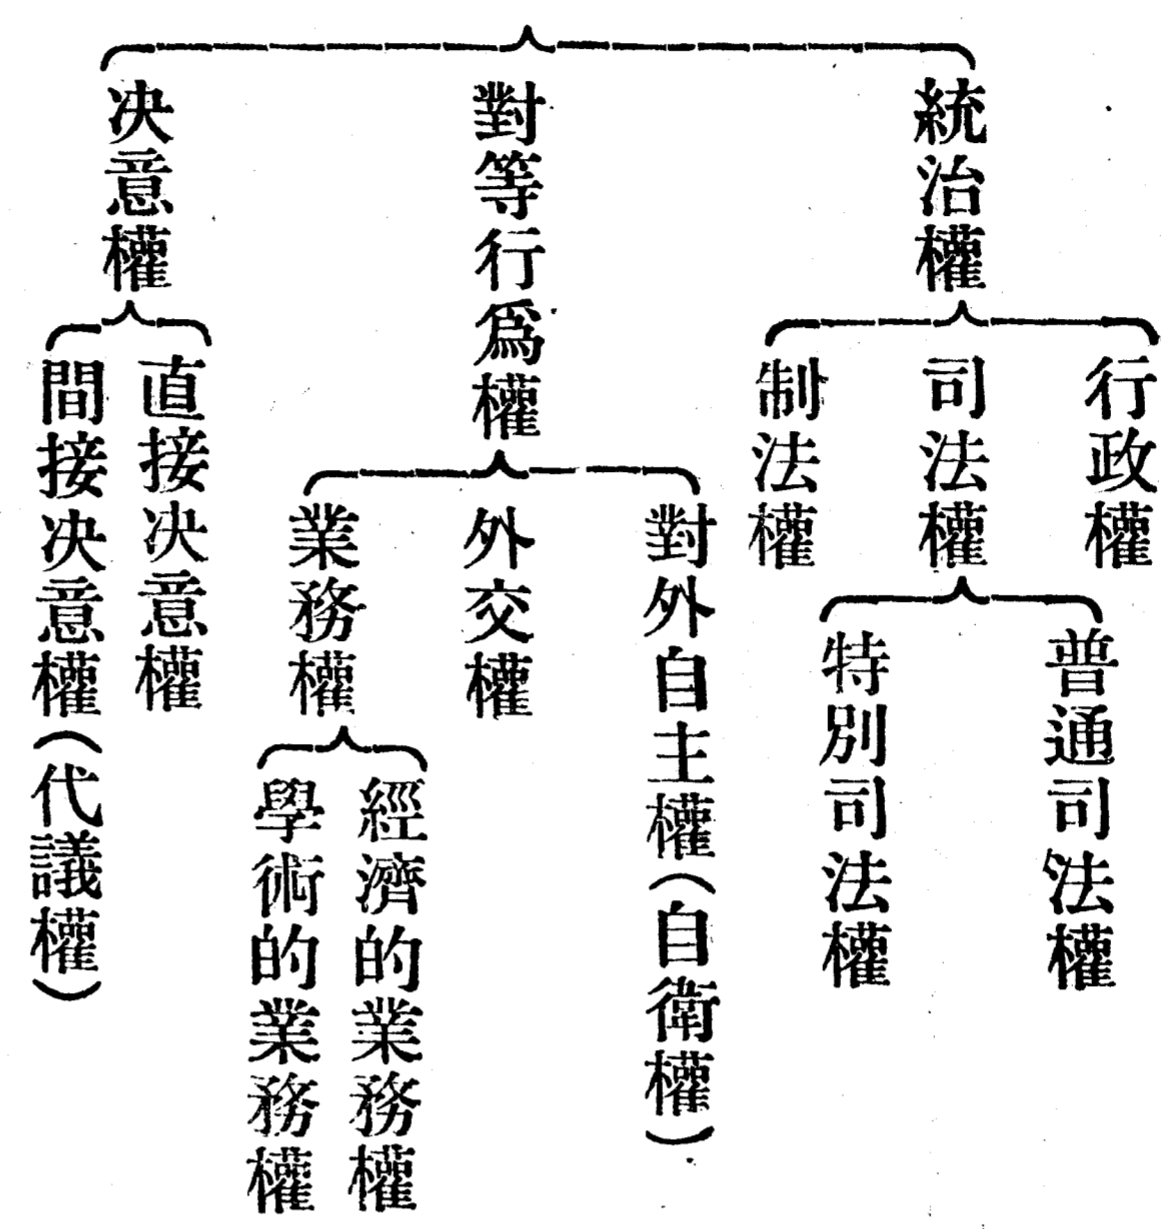 統治權
行政權
司法權
普通司法權
特別司法權
制法權
對等行爲權
對外自主權(自衛權)
外交權
業務權
經濟的業務權
學術的業務權
决意權
直接决意權
間接决意權(代議權)